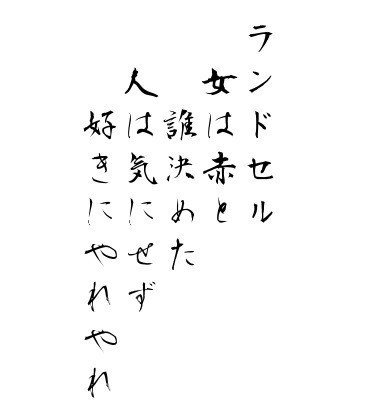 ランドセル
女は赤と
誰決めた
人は気にせず
好きにやれやれ